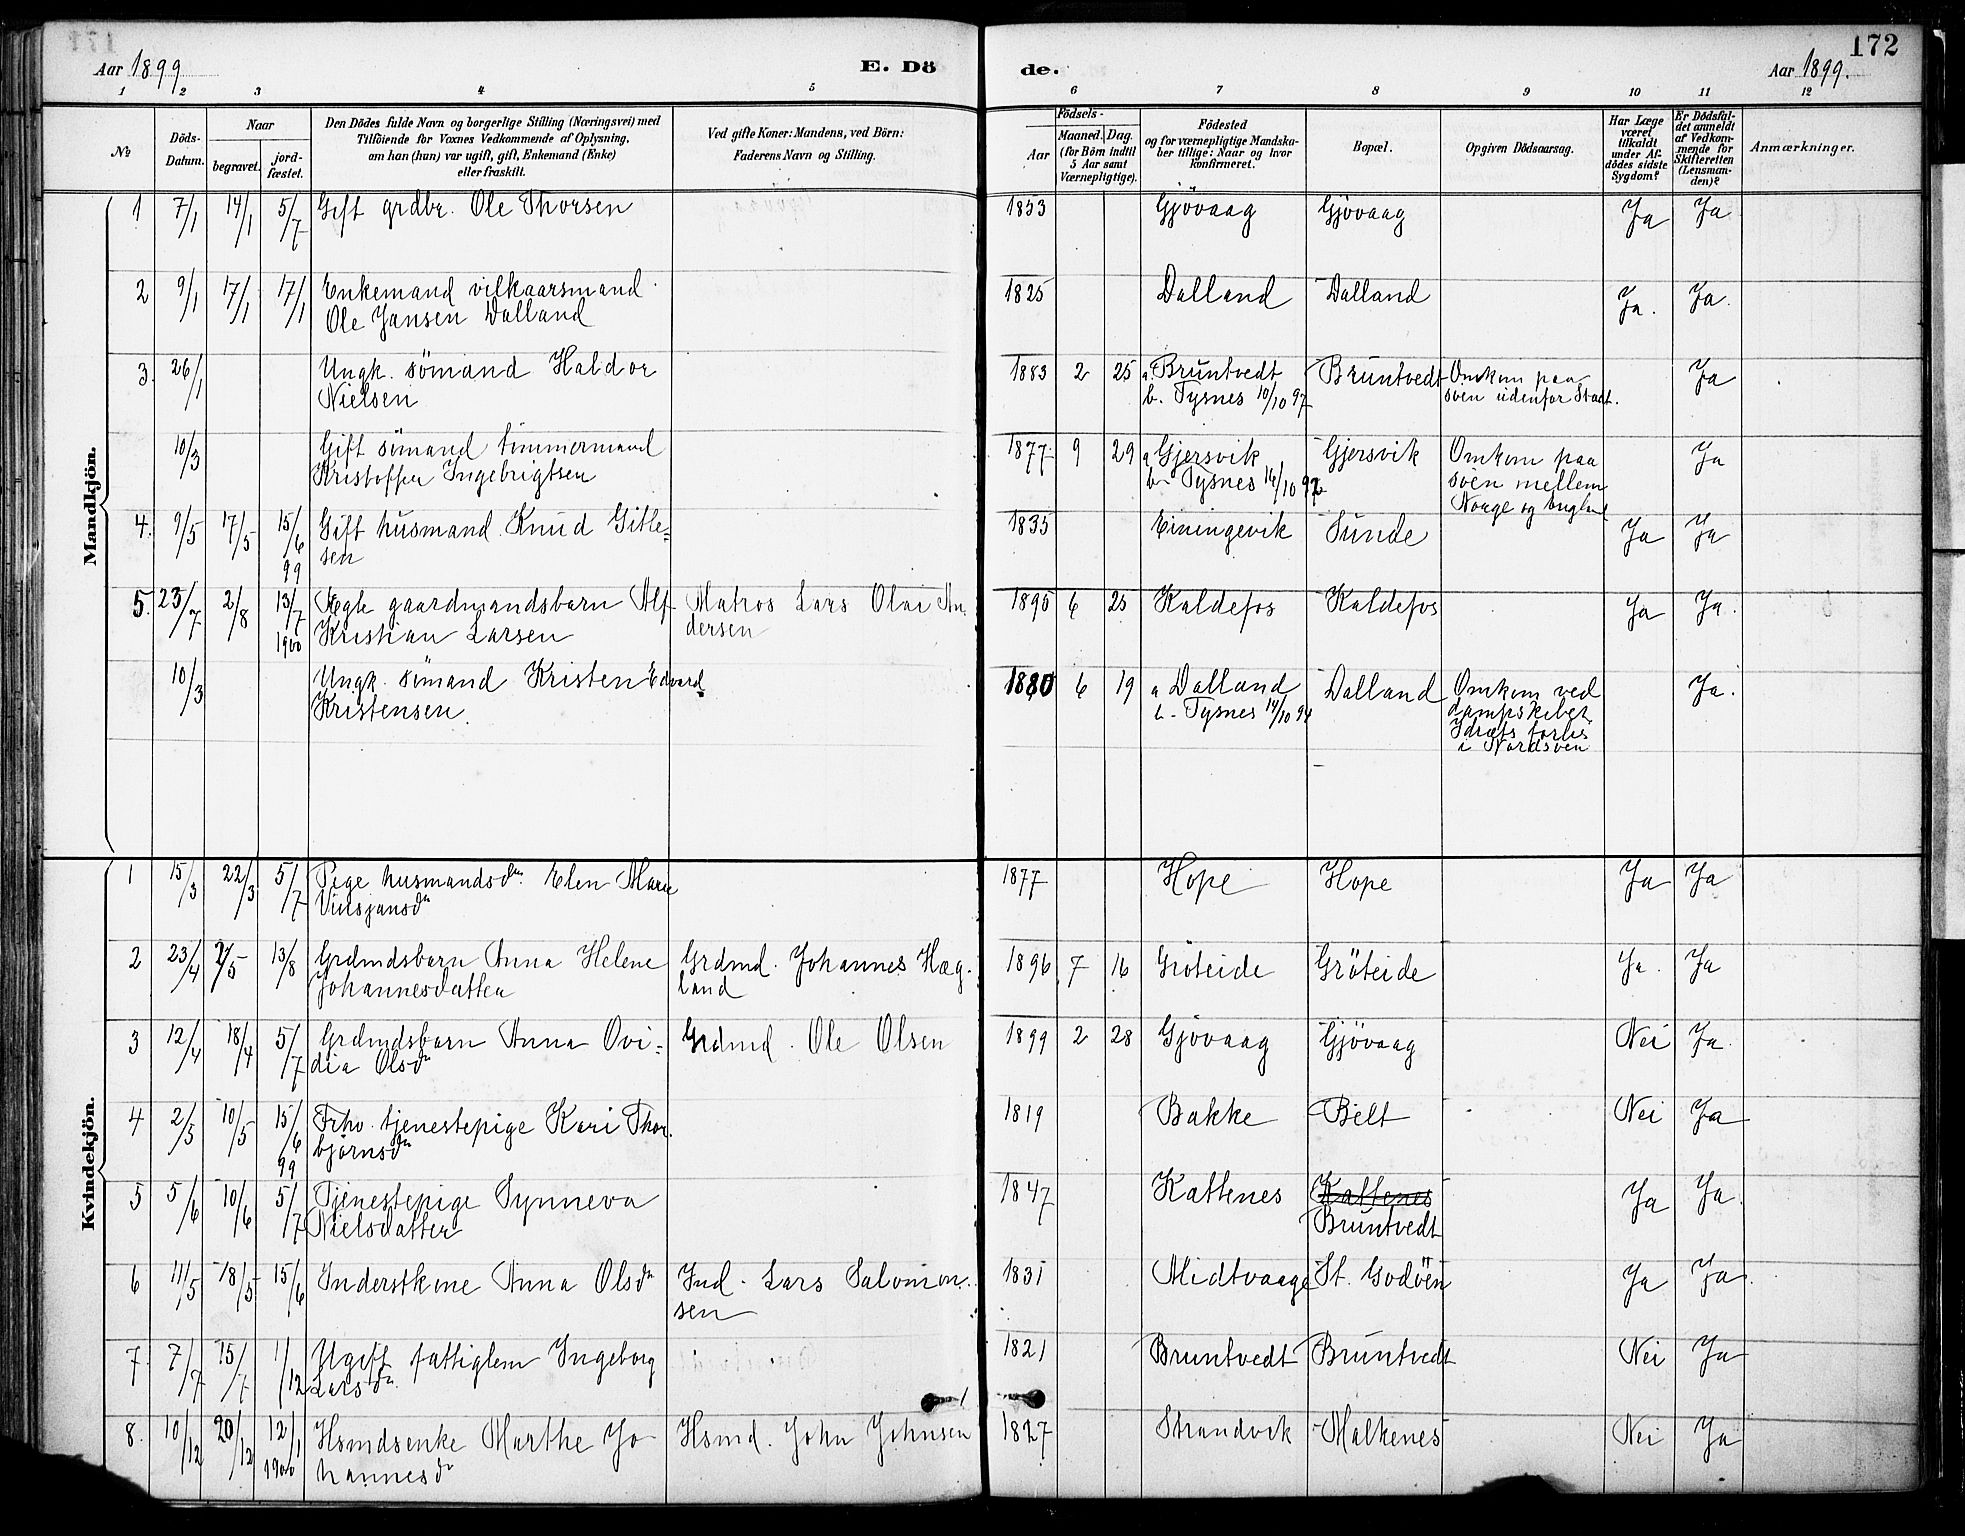 Aar 1899
E. Dö
de.
Aar 1899.
172
1 2 3 4 5
6 7 8 9 10 11 12
№
Döds-Datum.
Naar
begravet.
jord-fæstet.
Den Dödes fulde Navn og borgerlige Stilling (Næringsvei) med
Tilföiende for Voxnes Vedkommende af Oplysning,
om han (hun) var ugift, gift, Enkemand (Enke)
eller fraskilt.
Ved gifte Koner: Mandens, ved Börn:
Faderens Navn og Stilling.
Födsels-
Aar
Maaned. Dag.
(for Börn indtil
5 Aar samt
Værnepligtige).
Födested
og for værnepligtige Mandska-
ber tillige: Naar og hvor
konfirmeret.
Bopæl.
Opgiven Dödsaarsag.
Har Læge
været
tilkaldt
under Af-
dödes sidste
Sygdom?
Er Dödsfal-
det anmeldt
af Vedkom-
mende for
Skifteretten
(Lensman-
den)?
Anmærkninger.
Mandkjön.
1 7/1 14/1 5/7 Gift grdbr. Ole Thorsen 1853 Gjövaag Gjövaag Ja Ja
2 9/1 17/1 17/1 Enkemand vilkaarsmand 1825 Dalland Dalland Ja. Ja.
Ole Jansen Dalland
3. 26/1 Ungk. sömand Haldor 1883 2 25 a. Bruntvedt Bruntvedt Omkom paa Ja
Nielsen b. Tysnes 10/10 97 söen udenfor Stadt.
10/3 Gift sömand tömmermand 1877 9 29 a Gjersvik Gjersvik Omkom paa Ja
Kristoffer Ingebrigtsen b- Tysnes 16/10 92 söen mellem
Norge og England
4. 9/5 17/5 15/6 99 Gift husmand Knud Gitle= 1835 Einingevik Sunde Ja Ja
sen
5. 23/7 2/8 13/7 1900 Ægte gaardmandsbarn Alf Matros Lars Olai An- 1895 6 25 Kaldefos Kaldefos Ja Ja.
Kristian Larsen dersen
10/3 Ungk. sömand Kristen Edvard 1880 6 19 a Dalland Dalland Omkom ved Ja.
Kristensen. b- Tysnes 14/10 94 dampskibet
Idræts forlis
i Nordsöen
Kvindekjön.
1 15/3 22/3 5/7 Pige husmandsdtr. Elen Marie 1877 Hope Hope Ja Ja
2 23/4 2/5 13/8 Grdmdsbarn Anna Helene Grdmd. Johannes Hæg- 1896 7 16 Gröteide Gröteide Ja. Ja
Johannesdatter land
3 12/4 18/4 5/7 Grdmdsbarn Anna Ovi= Grdmd. Ole Olsen 1899 2 28 Gjövaag Gjövaag Nei Ja.
dia Olsdtr
4 2/5 10/5 15/6 99 Frhv. tjenestepige Kari Thor- 1819 Bakke Belt Nei Ja
björnsdtr
5 5/6 10/6 5/7 Tjenestepige Synneva 1847 Kattenes Kattenes Ja Ja.
Nielsdatter Bruntvedt
6 11/5 18/5 15/6 Inderstkone Anna Olsdtr Ind. Lars Salomon- 1831 Midtvaage St. Godöen Ja Ja.
sen
7. 7/7 15/7 1/12 Ugift fattiglem Ingeborg 1821 Bruntvedt Bruntvedt Nei Ja
Larsdtr.
8. 10/12 20/12 12/1 1900 Hsmdsenke Marthe Jo- Hsmd. John Johnsen 1827 Strandvik Malkenes Nei Ja
hannesdtr